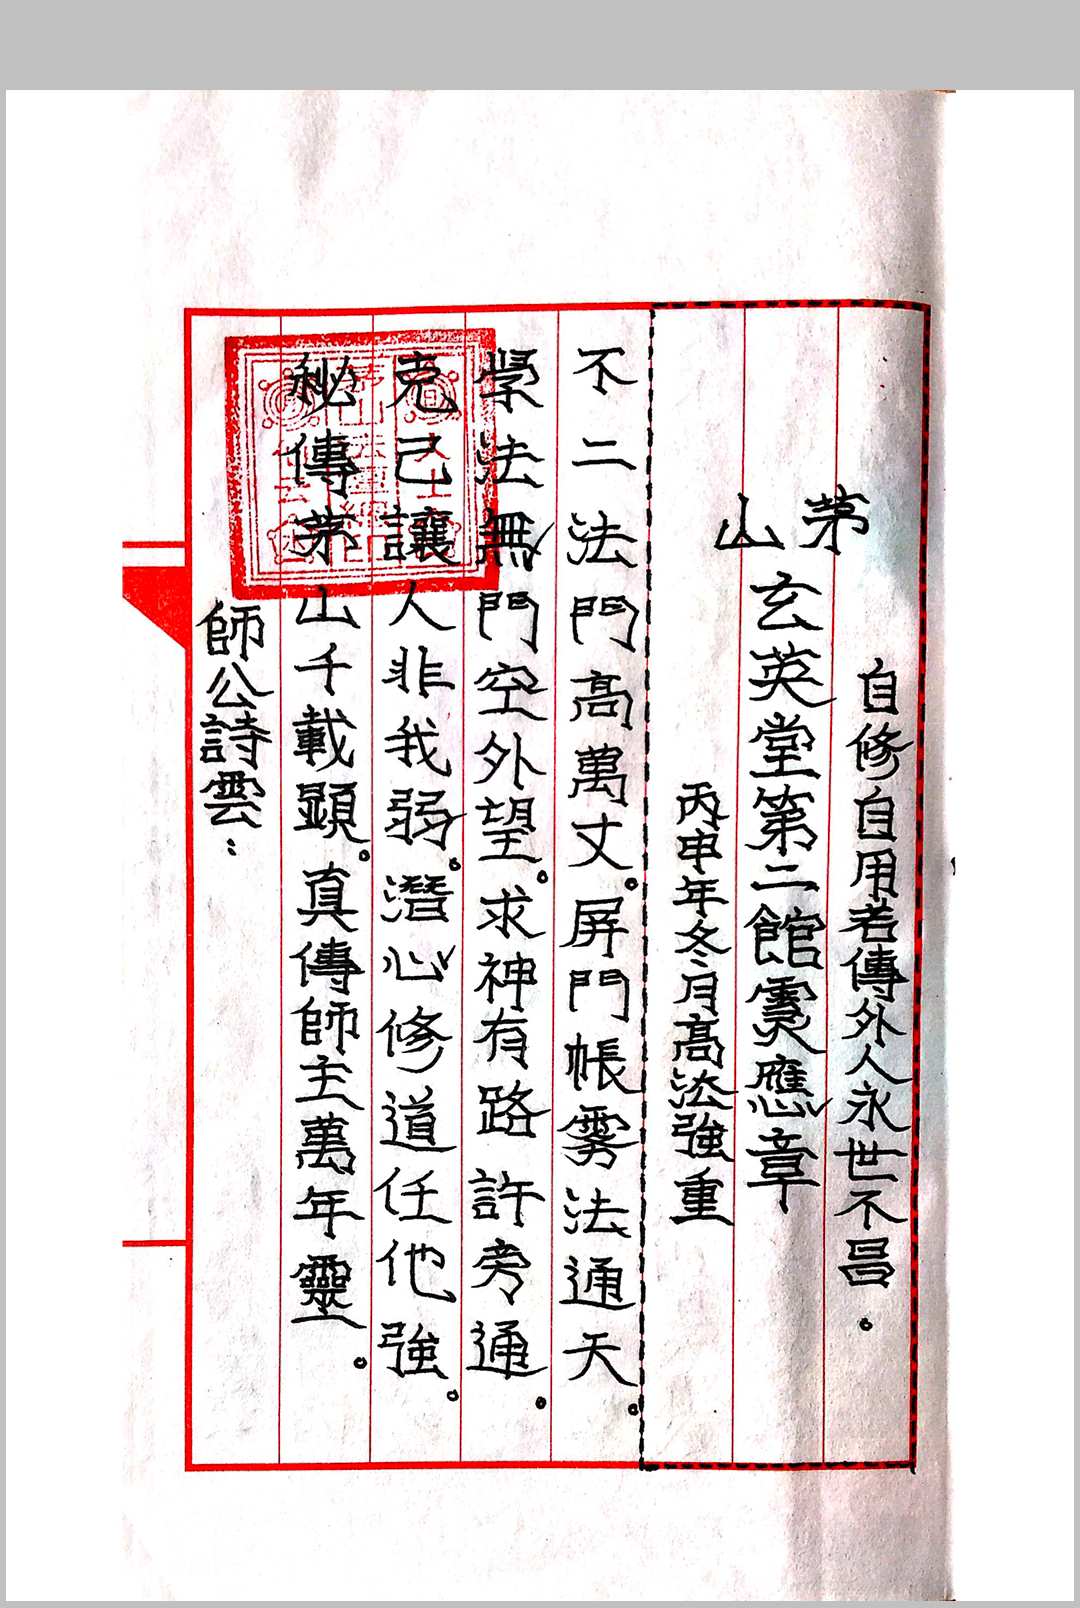 自修自用若傳外人永世不昌。
茅山玄英堂第二館霛應章
丙申年冬月高法強重
不二法門高萬丈。屏門帳雾法通天。
學法無門空外望。求神有路許旁通。
克己讓人非我弱。潛心修道任他強。
秘傳茅山千載顕。真傳師主萬年靈。
師公詩雲：